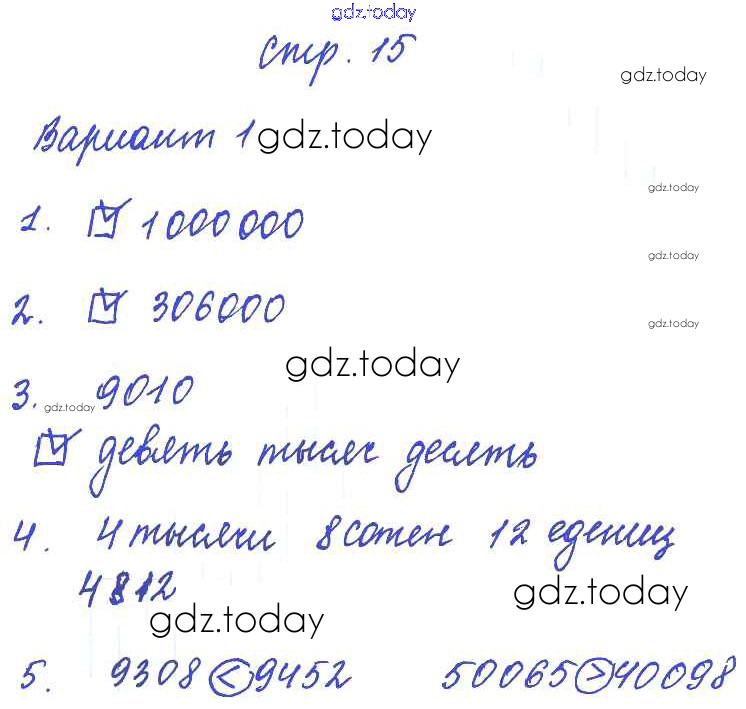 gdz.today
стр. 15
gdz.today
Вариант 1 gdz.today
gdz.today
1. ☑ 1000000
gdz.today
2. ☑ 306000
gdz.today
gdz.today
3. gdz.today 9010
☑ девять тысяч десять
4. 4 тысячи 8 сотен 12 едениц
4812
gdz.today
gdz.today
5. 9308 < 9452 50065 > 40098